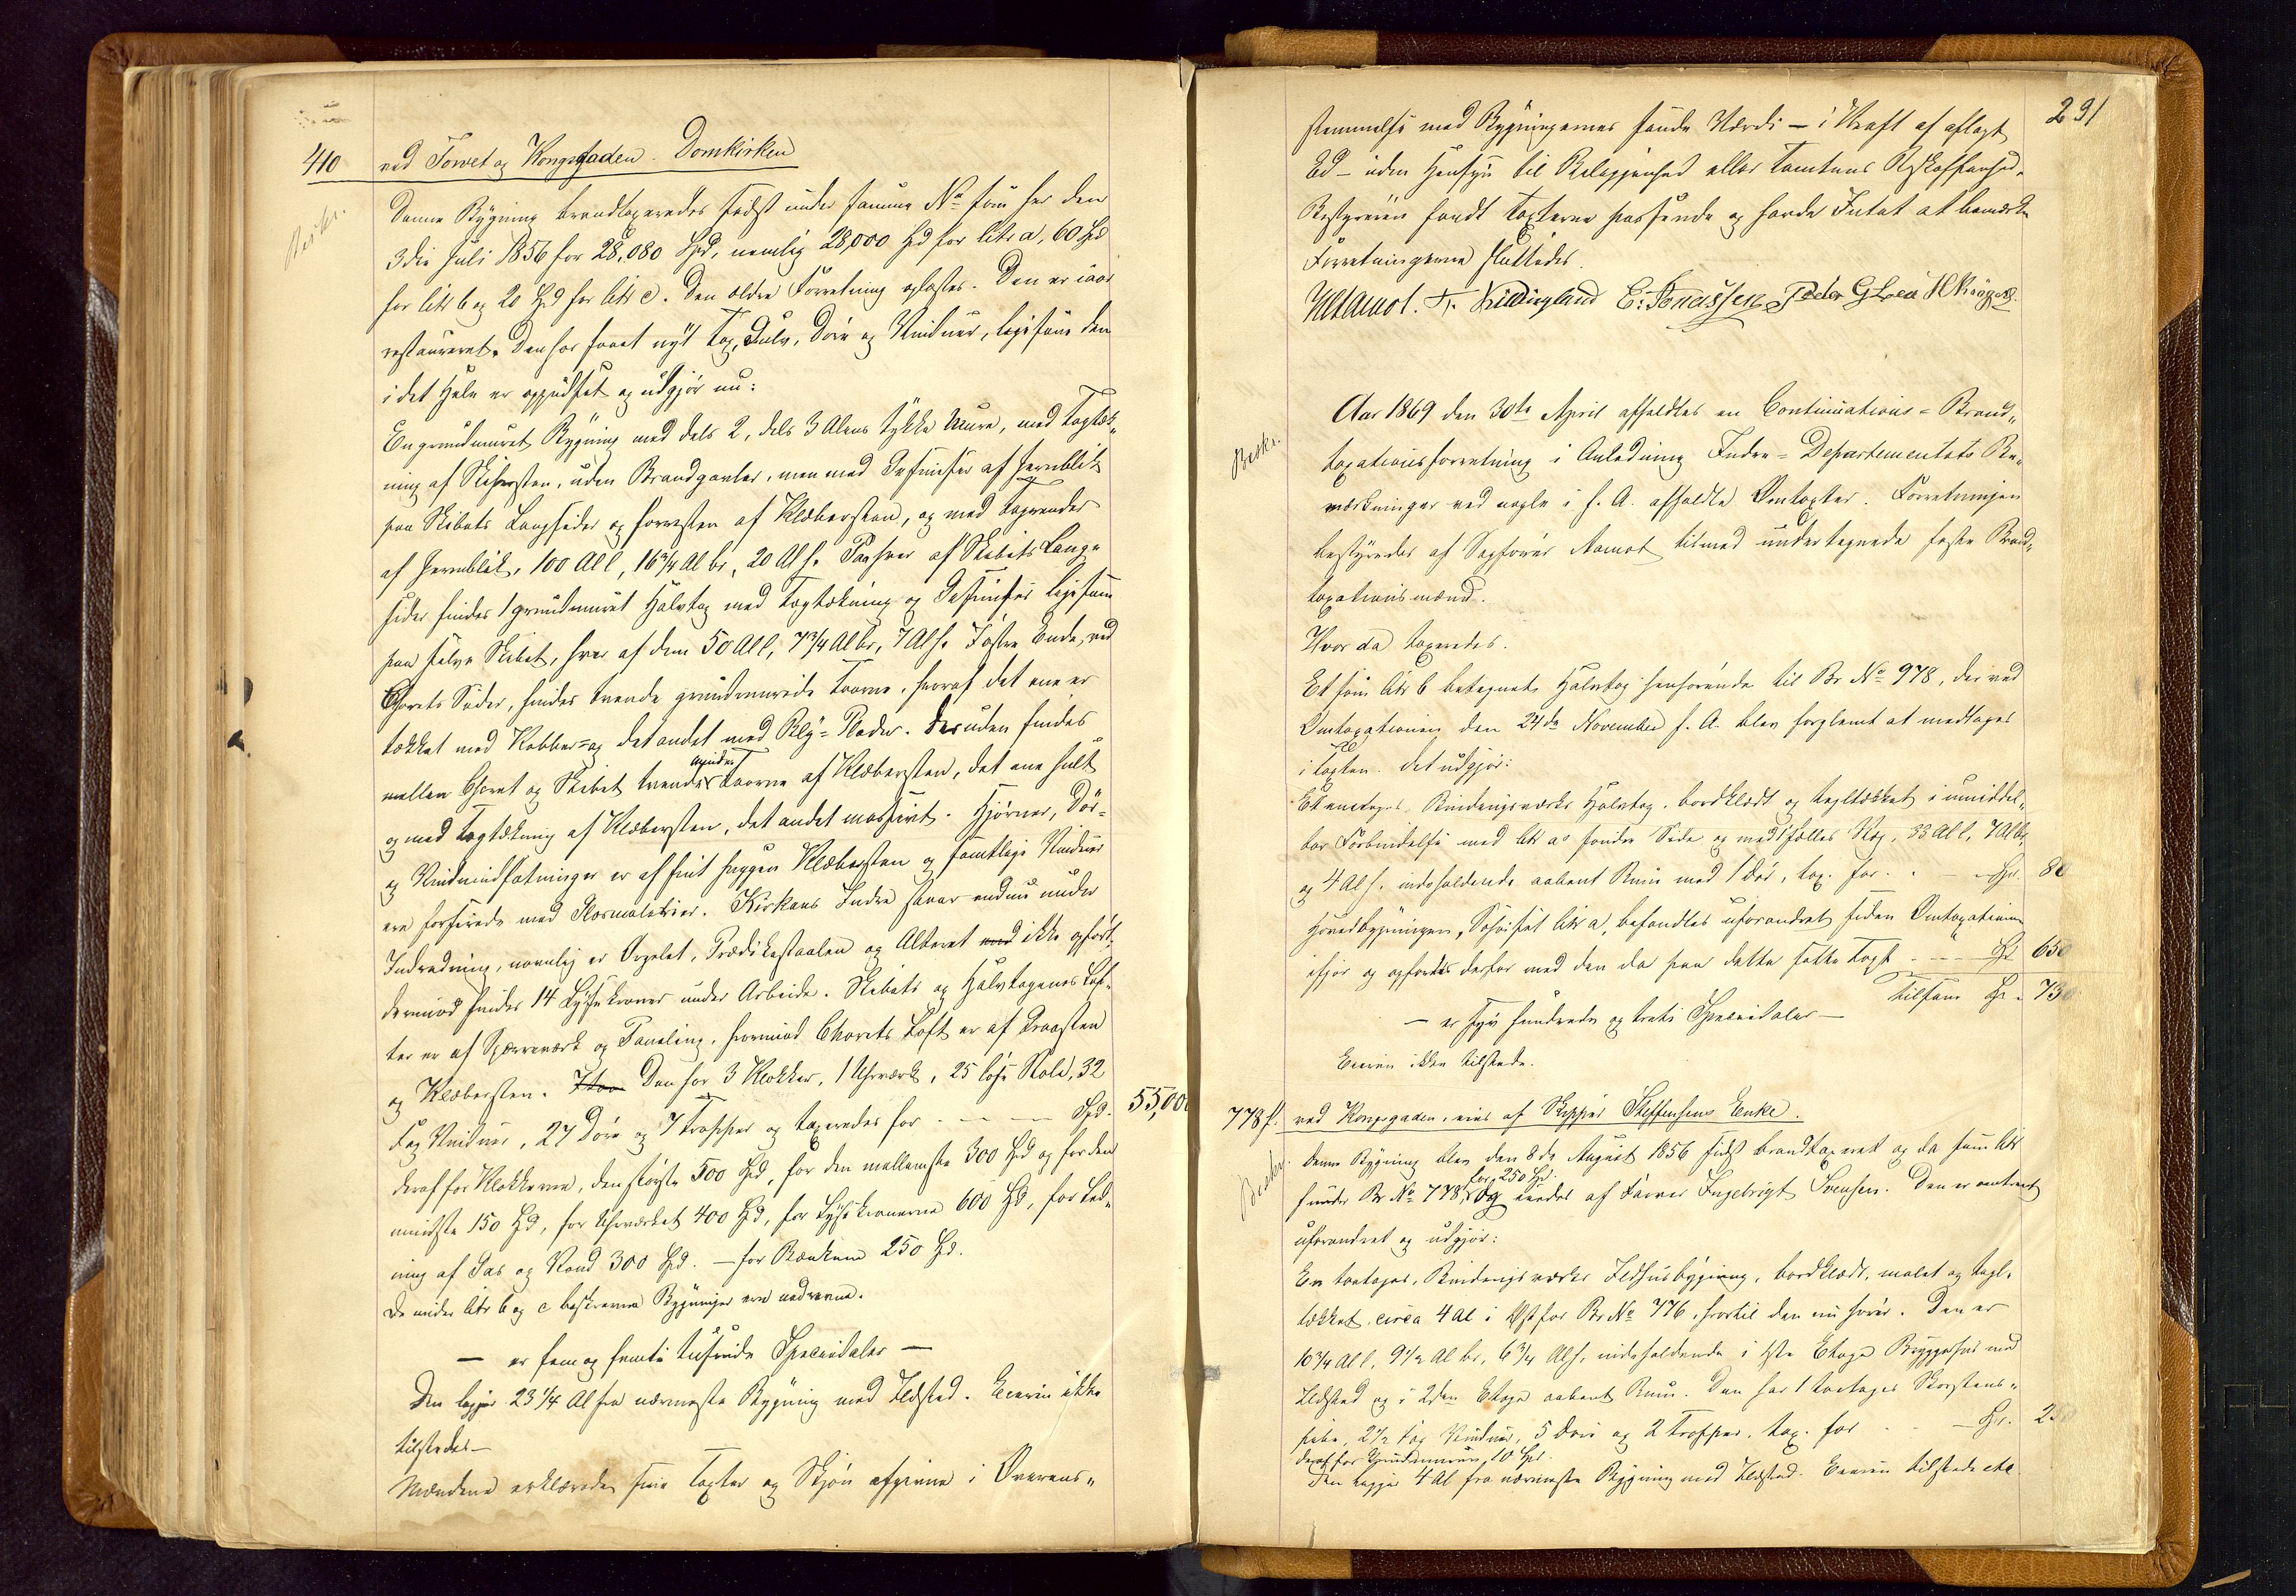 410 ved Torvet og Kongsgaden. Domkirken
Beskr.
Denne Bygning brandtaxeredes sidst under samme No som her den
3die Juli 1856 for 28,080 Spd, nemlig 28,000 Spd for litr a, 60 Spd
for litr b og 20 Spd for litr c. Den ældre Forretning oplæstes. Den er iaar
restaureret. Den har faaet nyt Tag, Gulv, Döre og Vinduer, ligesom den
i det Hele er oppudset og udgjör nu:
En grundmuret Bygning med dels 2, dels 3 Alens tykke Mure, med Tagtæk„
ning af Skifersten, uden Brandgavler, men med Gesimser af Jernblik
paa Skibets Langsider og forresten af Klæbersten, og med Tagrender
af Jernblik, 100 Al l, 16 3/4 Al br, 20 Al h. Paa hver af Skibets Lang„
sider findes 1 grundmuret Halvtag med Tagtækning og Gesimser ligesom
paa selve Skibet, hver af dem 50 Al l, 7 3/4 Al br, 7 Al h. I östre Ende, ved
Chorets Sider, findes tvende grundmurede Taarne, hvoraf det ene er
tækket med Kobber= og det andet med Bly=Plader. Desuden findes
mellem Choret og Skibet tvende mindre Taarne af Klæbersten, det ene hult
og med Tagtækning af Klæbersten, det andet massivt. Hjörner, Dör=
og Vinduindfatninger er af fint huggen Klæbersten og samtlige Vinduer
ere forsirede med Glasmalerier. Kirkens Indre staar endnu under
Indredning, navnlig er Orgelet, Prædikestaalen og Alteret ikke opfört,
derimod findes 14 Lysekroner under Arbeide. Skibets og Halvtagenes Lof„
ter er af Spærreværk og Paneling, hvorimod Chorets Loft er af Graasten
og Klæbersten. Den har 3 Klokker, 1 Uhrværk, 25 löse Stole, 32
Fag Vinduer, 27 Döre og 7 Trapper og taxeredes for - - - Spd. 55,000
deraf for Klokkerne, den störste 500 Spd, for den mellemste 300 Spd og for den
mindste 150 Spd, for Uhrværket 400 Spd, for Lysekronerne 600 Spd, for Led„
ning af Gas og Vand 300 Spd. — for Bænkene 250 Spd.
De under litr b og c beskrevne Bygninger ere nedrevne.
— er fem og femti tusinde Speciedaler —
Den ligger 23 1/4 Al fra nærmeste Bygning med Ildsted. Eieren ikke
tilstede.—
Mændene erklærede sine Taxter og Skjön afgivne i Overens„
291
stemmelse med Bygningernes sande Værdi — i Kraft af aflagt
Ed — uden Hensyn til Beliggenhed eller Tomtens Beskaffenhed.
Bestyreren fandt Taxterne passende og havde Intet at bemærke
Forretningerne sluttedes.
Aamot. T. Killingland E. Jonassen Peder G Lea H Kröger
Beskr.
Aar 1869 den 30te April afholdtes en Continuations=Brand„
taxationsforretning i Anledning Indre=Departementets Be„
mærkninger ved nogle i f. A. afholdte Omtaxter. Forretningen
bestyredes af Sagförer Aamot tilmed undertegnede faste Brand„
taxationsmænd.
Hvor da taxeredes.
Et som litr b betegnet Halvtag henhörende til Br No 978, der ved
Omtaxationen den 24de November f. A. blev forglemt at medtages
i Taxten. Det udgjör:
Et enetages Bindingsværks Halvtag, bordklædt og tagltækket i umiddel„
bar Forbindelse med litr a's söndre Side og med fælles Væg, 33 Al l, 7 Al br,
og 4 Al h. indeholdende aabent Rum med 1 Dör, tax. for. - - - Spd. 80
Hovedbygningen, Söhuset litr a, befandtes uforandret siden Omtaxationen
ifjor og opföres derfor med den da paa dette satte Taxt - - - Spd 650
Tilsam. Spd. 730
— er syv hundrede og treti Speciedaler —
Eieren ikke tilstede.
778 f. ved Kongsgaden, eies af Skipper Steffensens Enke.
Beskr.
Denne Bygning blev den 8de August 1856 sidst brandtaxeret og da som litr
f under Br No 778, for 250 Spd. og eiedes af Farver Ingebrigt Svensen. Den er omtrent
uforandret og udgjör:
En toetages, Bindingsværks Ildhusbygning, bordklædt, malet og tagl„
tækket, circa 4 Al i Öst for Br No 776, hvortil den nu hörer. Den er
10 3/4 Al l, 9 1/2 Al br, 6 3/4 Al h, indeholdende i 1ste Etage Bryggehus med
Ildsted og i 2den Etage aabent Rum. Den har 1 toetages Skorstens„
pibe, 2 1/2 Fag Vinduer, 5 Döre og 2 Trapper, tax. for - - Spd. 250
deraf for Grundmuren, 10 Spd.
Den ligger 4 Al fra nærmeste Bygning med Ildsted. Eieren tilstede etc